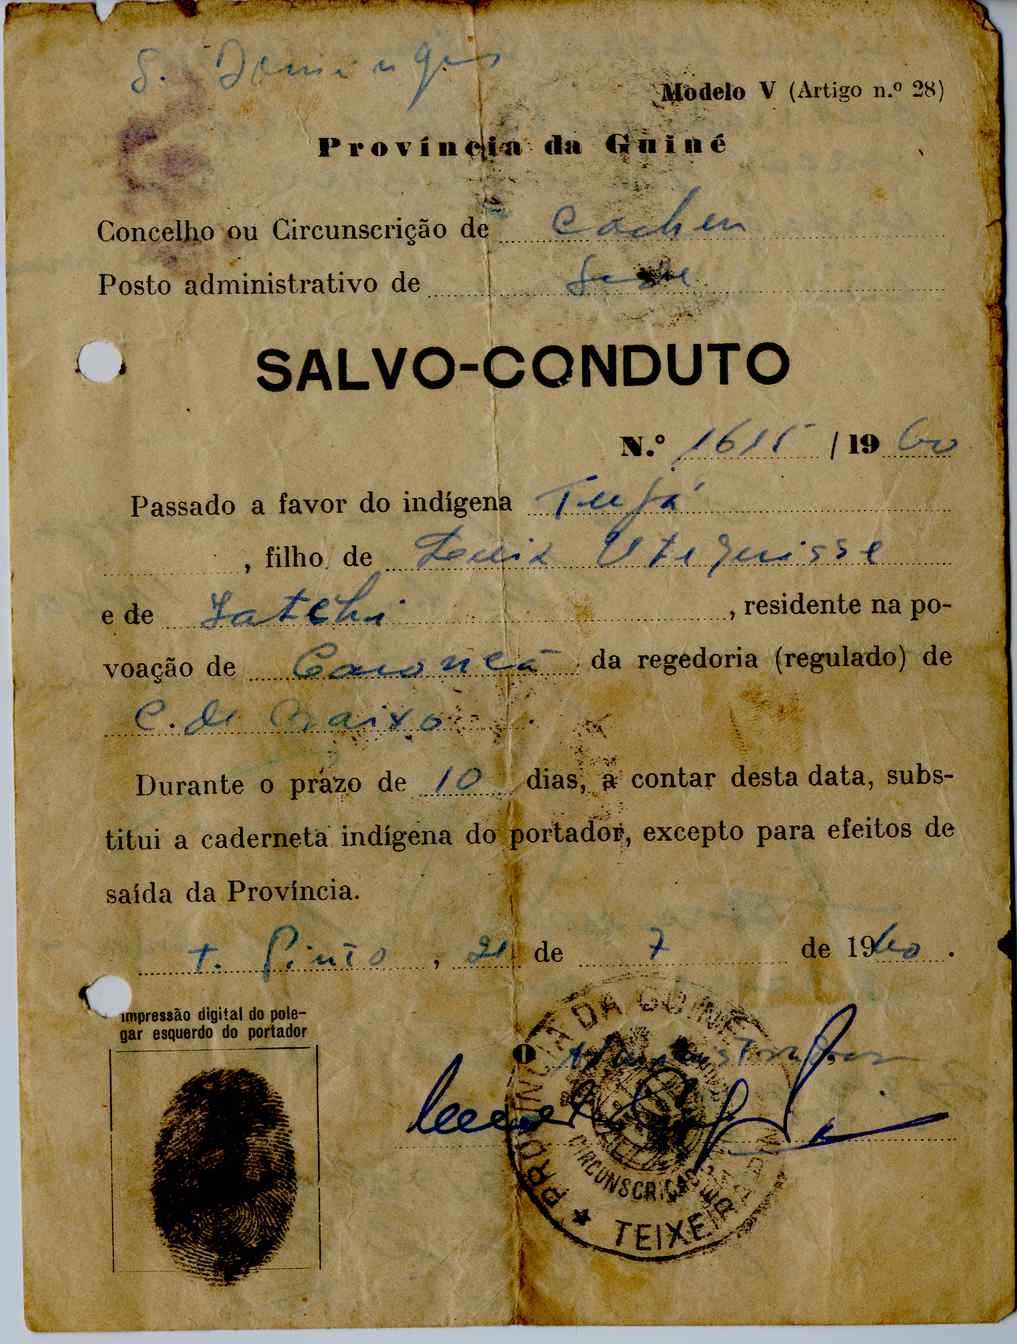 S. Domingos
Modelo V (Artigo n.º 28)
Província da Guiné
Concelho ou Circunscrição de Cacheu
Posto administrativo de Sede
SALVO-CONDUTO
N.º 1615 / 1960
Passado a favor do indígena
, filho de Luiz
e de , residente na po-
voação de da regedoria (regulado) de
C. de Baixo
Durante o prazo de 10 dias, a contar desta data, subs-
titui a caderneta indígena do portador, excepto para efeitos de
saída da Província.
T. Pinto, 21 de 7 de 1960.
Impressão digital do pole-
gar esquerdo do portador
O Administrador
PROVINCIA DA GUINÉ
CIRCUNSCRIÇÃO
TEIXEIRA